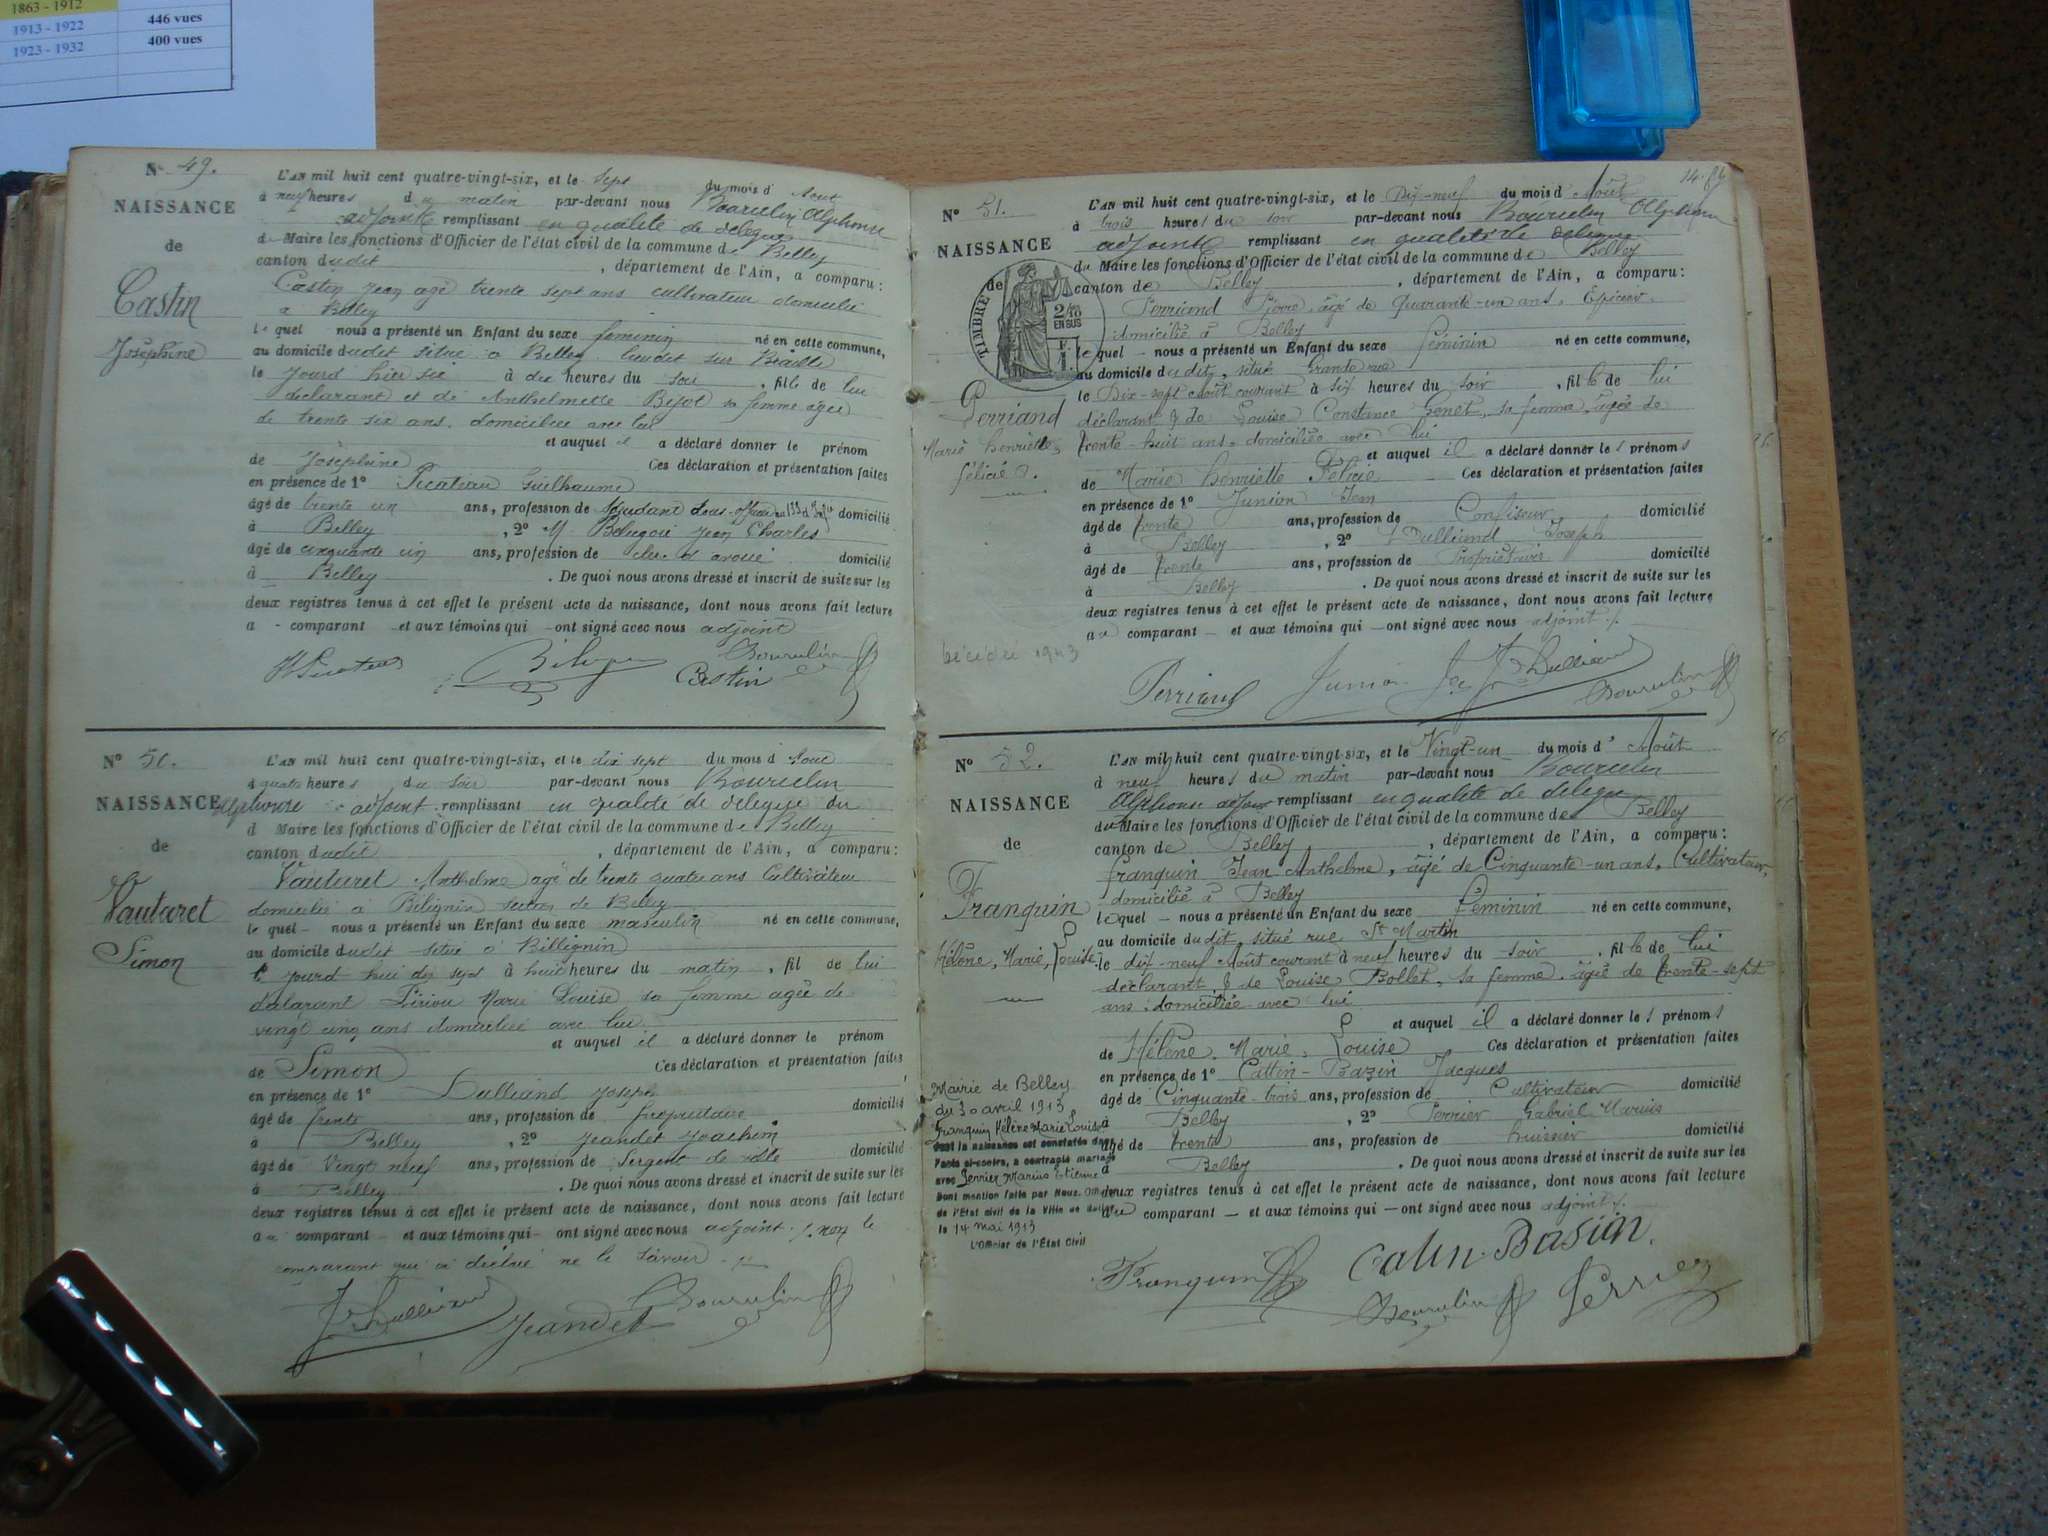 1863 - 1912
1913 - 1922 446 vues
1923 - 1932 400 vues
N° 49.
NAISSANCE
de
Castin
Joséphine
L'AN mil huit cent quatre-vingt-six, et le sept du mois d' Aout
à neuf heures du matin par-devant nous Bourulin Alphonse
adjoint remplissant en qualité de délégué
de Maire les fonctions d'Officier de l'état civil de la commune de Belley
canton dudit , département de l'Ain, a comparu :
Castin Jean agé trente sept ans cultivateur domicilié
a Belley
le quel nous a présenté un Enfant du sexe feminin né en cette commune,
au domicile dudit situé a Belley
le jourd'hier six à dix heures du soir , fille de lui
declarant et de Anthelmette Bijot sa femme agée
de trente six ans. domiciliée avec lui
et auquel il a déclaré donner le prénom
de Joséphine Ces déclaration et présentation faites
en présence de 1° Picateau Guilhaume
âgé de trente un ans, profession de adjudant sous-officier domicilié
à Belley , 2° M. Jean Charles
âgé de cinquante cin ans, profession de clerc d'avoué domicilié
à Belley . De quoi nous avons dressé et inscrit de suite sur les
deux registres tenus à cet effet le présent acte de naissance, dont nous avons fait lecture
a comparant et aux témoins qui ont signé avec nous adjoint
Bourulin
Castin
N° 50.
NAISSANCE
de
Vautaret
Simon
L'AN mil huit cent quatre-vingt-six, et le dix sept du mois d' Aout
à quatre heures du soir par-devant nous Bourulin
Alphonse adjoint remplissant en qualité de délégué du
d Maire les fonctions d'Officier de l'état civil de la commune de Belley
canton dudit , département de l'Ain, a comparu :
Vautaret Anthelme agé de trente quatre ans Cultivateur
domicilié a Bélignin section de Belley
le quel nous a présenté un Enfant du sexe masculin né en cette commune,
au domicile dudit situé à Billignin
le jourd'hui dix sept à huit heures du matin , fil de lui
déclarant Marie Louise sa femme agée de
vingt cinq ans domiciliée avec lui
et auquel il a déclaré donner le prénom
de Simon Ces déclaration et présentation faites
en présence de 1° Dulliand Joseph
âgé de trente ans, profession de propriétaire domicilié
à Belley , 2° Jeandet Joachim
âgé de vingt neuf ans, profession de Sergent de ville domicilié
à Belley . De quoi nous avons dressé et inscrit de suite sur les
deux registres tenus à cet effet le présent acte de naissance, dont nous avons fait lecture
au comparant et aux témoins qui ont signé avec nous adjoint ./. non le
comparant qui a déclaré ne le savoir ./.
Dulliand
Jeandet
Bourulin
N° 51.
NAISSANCE
de
TIMBRE
2/10
EN SUS
Perriand
Marie henriette
félicie
décédée 1943
L'AN mil huit cent quatre-vingt-six, et le Dix-neuf du mois d' Août
à trois heures du soir par-devant nous Bourulin Alphonse
adjoint remplissant en qualité de délégué
du Maire les fonctions d'Officier de l'état civil de la commune de Belley
canton de Belley , département de l'Ain, a comparu :
Perriand Pierre, âgé de Quarante-un ans, Epicier,
domicilié à Belley
le quel nous a présenté un Enfant du sexe féminin né en cette commune,
au domicile dudit, situé Grande rue
le Dix-sept Août courant à six heures du soir , fille de lui
déclarant & de Louise Constance Genet, sa femme, âgée de
trente-huit ans, domiciliée avec lui
et auquel il a déclaré donner les prénoms
de Marie henriette Félicie Ces déclaration et présentation faites
en présence de 1° Junion Jean
âgé de trente ans, profession de Confiseur domicilié
à Belley , 2° Dulliand Joseph
âgé de trente ans, profession de Propriétaire domicilié
à Belley . De quoi nous avons dressé et inscrit de suite sur les
deux registres tenus à cet effet le présent acte de naissance, dont nous avons fait lecture
au comparant et aux témoins qui ont signé avec nous adjoint ./.
Perriand Junion Dulliand
Bourulin
N° 52.
NAISSANCE
de
Franquin
Hélène, Marie, Louise
L'AN mil huit cent quatre-vingt-six, et le Vingt-un du mois d' Août
à neuf heures du matin par-devant nous Bourulin
Alphonse adjoint remplissant en qualité de délégué
du Maire les fonctions d'Officier de l'état civil de la commune de Belley
canton de Belley , département de l'Ain, a comparu :
franquin Jean Anthelme, âgé de Cinquante-un ans, Cultivateur,
domicilié à Belley
lequel nous a présenté un Enfant du sexe féminin né en cette commune,
au domicile dudit, situé rue St Martin
le dix-neuf Août courant à neuf heures du soir , fille de lui
déclarant & de Louise Bollet, sa femme, âgée de trente-sept
ans, domiciliée avec lui
et auquel il a déclaré donner les prénoms
de Hélène, Marie, Louise Ces déclaration et présentation faites
en présence de 1° Cattin-Bazin Jacques
âgé de Cinquante-trois ans, profession de Cultivateur domicilié
à Belley , 2° Perrier Gabriel Marius
âgé de trente ans, profession de huissier domicilié
à Belley . De quoi nous avons dressé et inscrit de suite sur les
deux registres tenus à cet effet le présent acte de naissance, dont nous avons fait lecture
au comparant et aux témoins qui ont signé avec nous adjoint ./.
Mairie de Belley
du 30 avril 1913
Franquin Hélène Marie Louise
dont la naissance est constatée dans
l'acte ci-contre, a contracté mariage
avec Perrier Marius Etienne
Dont mention faite par Nous, Officier
de l'Etat civil de la Ville de Belley
le 14 mai 1913
L'Officier de l'Etat Civil
Franquin
Catin-Basin
Bourulin
Perrier